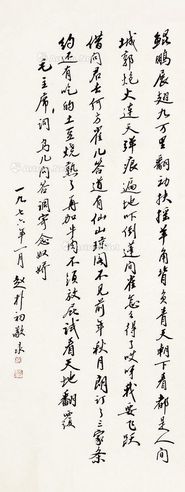 鯤鵬展翅九万里翻动扶摇羊角背負青天朝下看都是人间
城郭炮火連天彈痕遍地吓倒蓬间雀怎么得了哎呀我要飞跃
借问君去何方雀儿答道有仙山琼阁不見前年秋月朗订了三家条
约还有吃的土豆烧熟了再加牛肉不须放屁試看天地翻覆
毛主席词鸟儿问答調寄念奴娇
一九七六年一月 赵朴初敬录